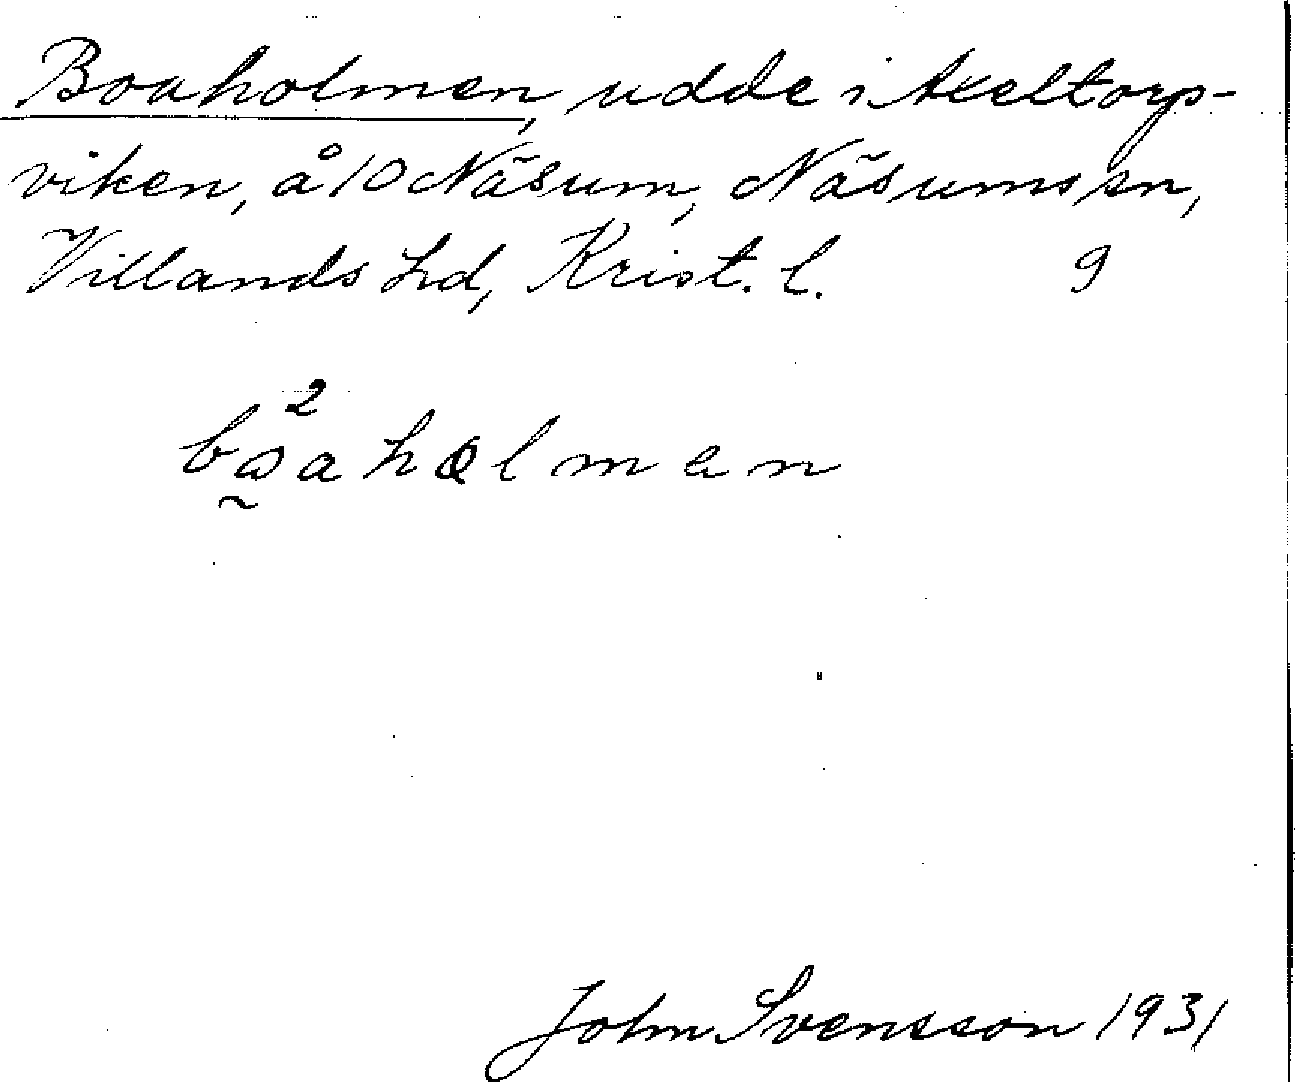 Boaholmen, udde i Axeltorps-
viken, å 10 Näsum, Näsums sn,
Villands hd, Krist. l. 9
2
John Svensson 1931